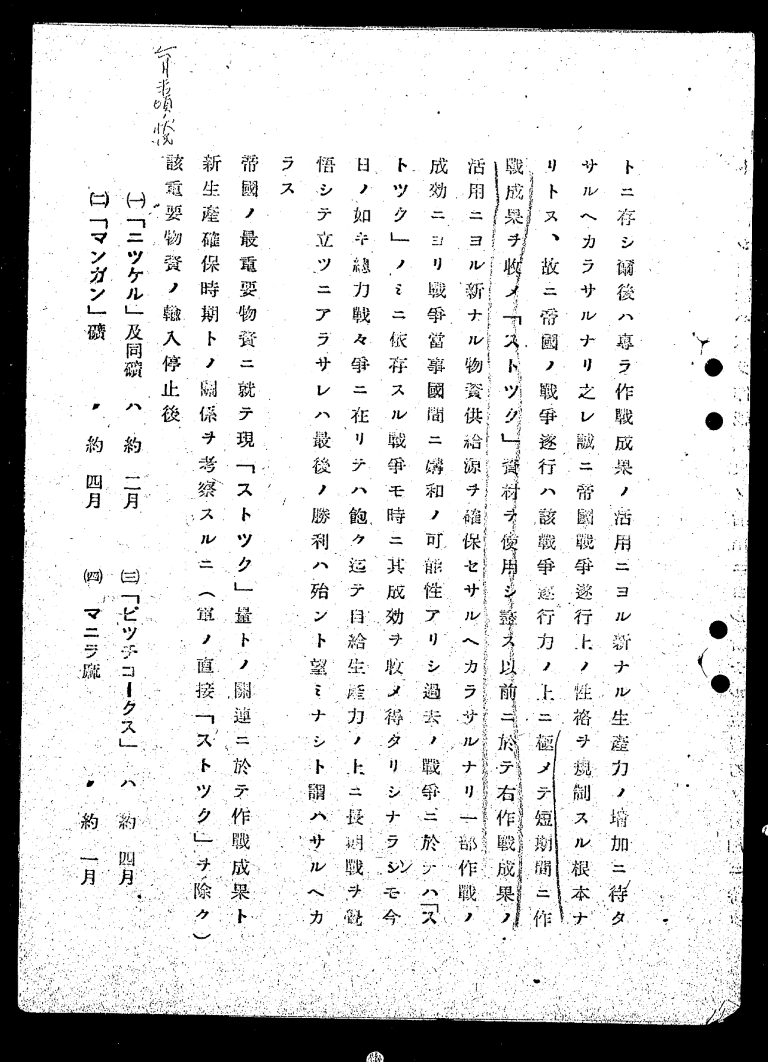 トニ存シ爾後ハ專ラ作戰成果ノ活用ニヨル新ナル生產力ノ增加ニ待タ
サルヘカラサルナリ之レ誠ニ帝國戰爭遂行上ノ性格ヲ規制スル根本ナ
リトス、故ニ帝國ノ戰爭遂行ハ該戰爭遂行力ノ上ニ極メテ短期間ニ作
戰成果ヲ收メ「ストツク」資材ヲ使用シ盡ス以前ニ於テ右作戰成果ノ
活用ニヨル新ナル物資供給源ヲ確保セサルヘカラサルナリ一部作戰ノ
成効ニヨリ戰爭當事國間ニ媾和ノ可能性アリシ過去ノ戰爭ニ於テハ「ス
トツク」ノミニ依存スル戰爭モ時ニ其成効ヲ收メ得タリシナランモ今
日ノ如キ總力戰々爭ニ在リテハ飽ク迄テ自給生產力ノ上ニ長期戰ヲ覺
悟シテ立ツニアラサレハ最後ノ勝利ハ殆ント望ミナシト謂ハサルヘカ
ラス
帝國ノ最重要物資ニ就テ現「ストツク」量トノ關連ニ於テ作戰成果ト
新生產確保時期トノ關係ヲ考察スルニ(軍ノ直接「ストツク」ヲ除ク)
該重要物資ノ輸入停止後
㈠「ニツケル」及同礦 ハ 約 二月 ㈢「ピツチコークス」 ハ 約 四月
㈡「マンガン」礦 〃 約 四月 ㈣ マニラ麻 〃 約 一月
月 頃ノ狀況